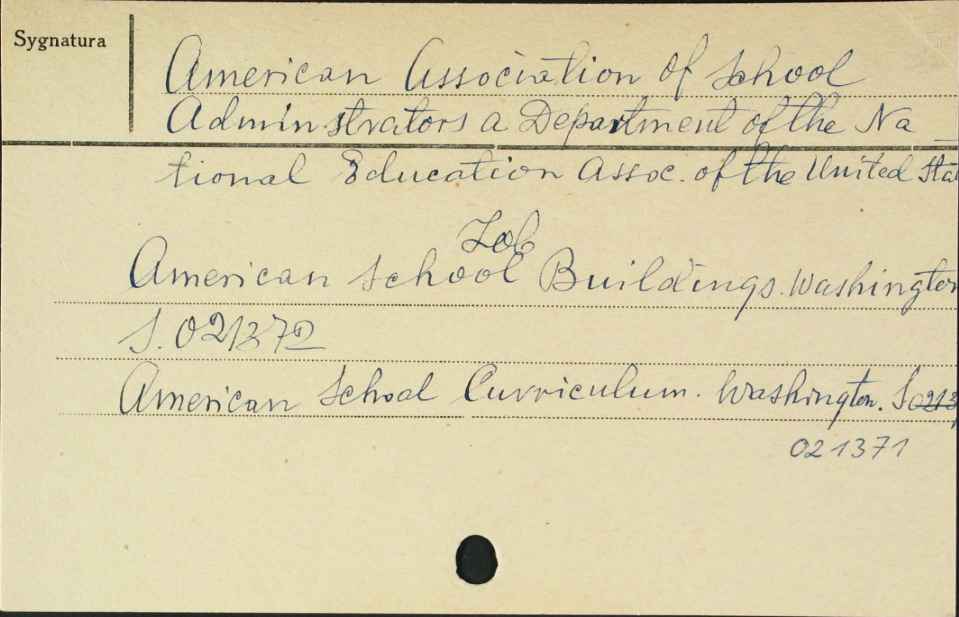 Sygnatura
American Association of School
Administrators a Department of the Na
tional Education Assoc. of the United Sta
Zob
American School Buildings. Washington
S. 021372
American School Curriculum. Washington. S 0213
021371